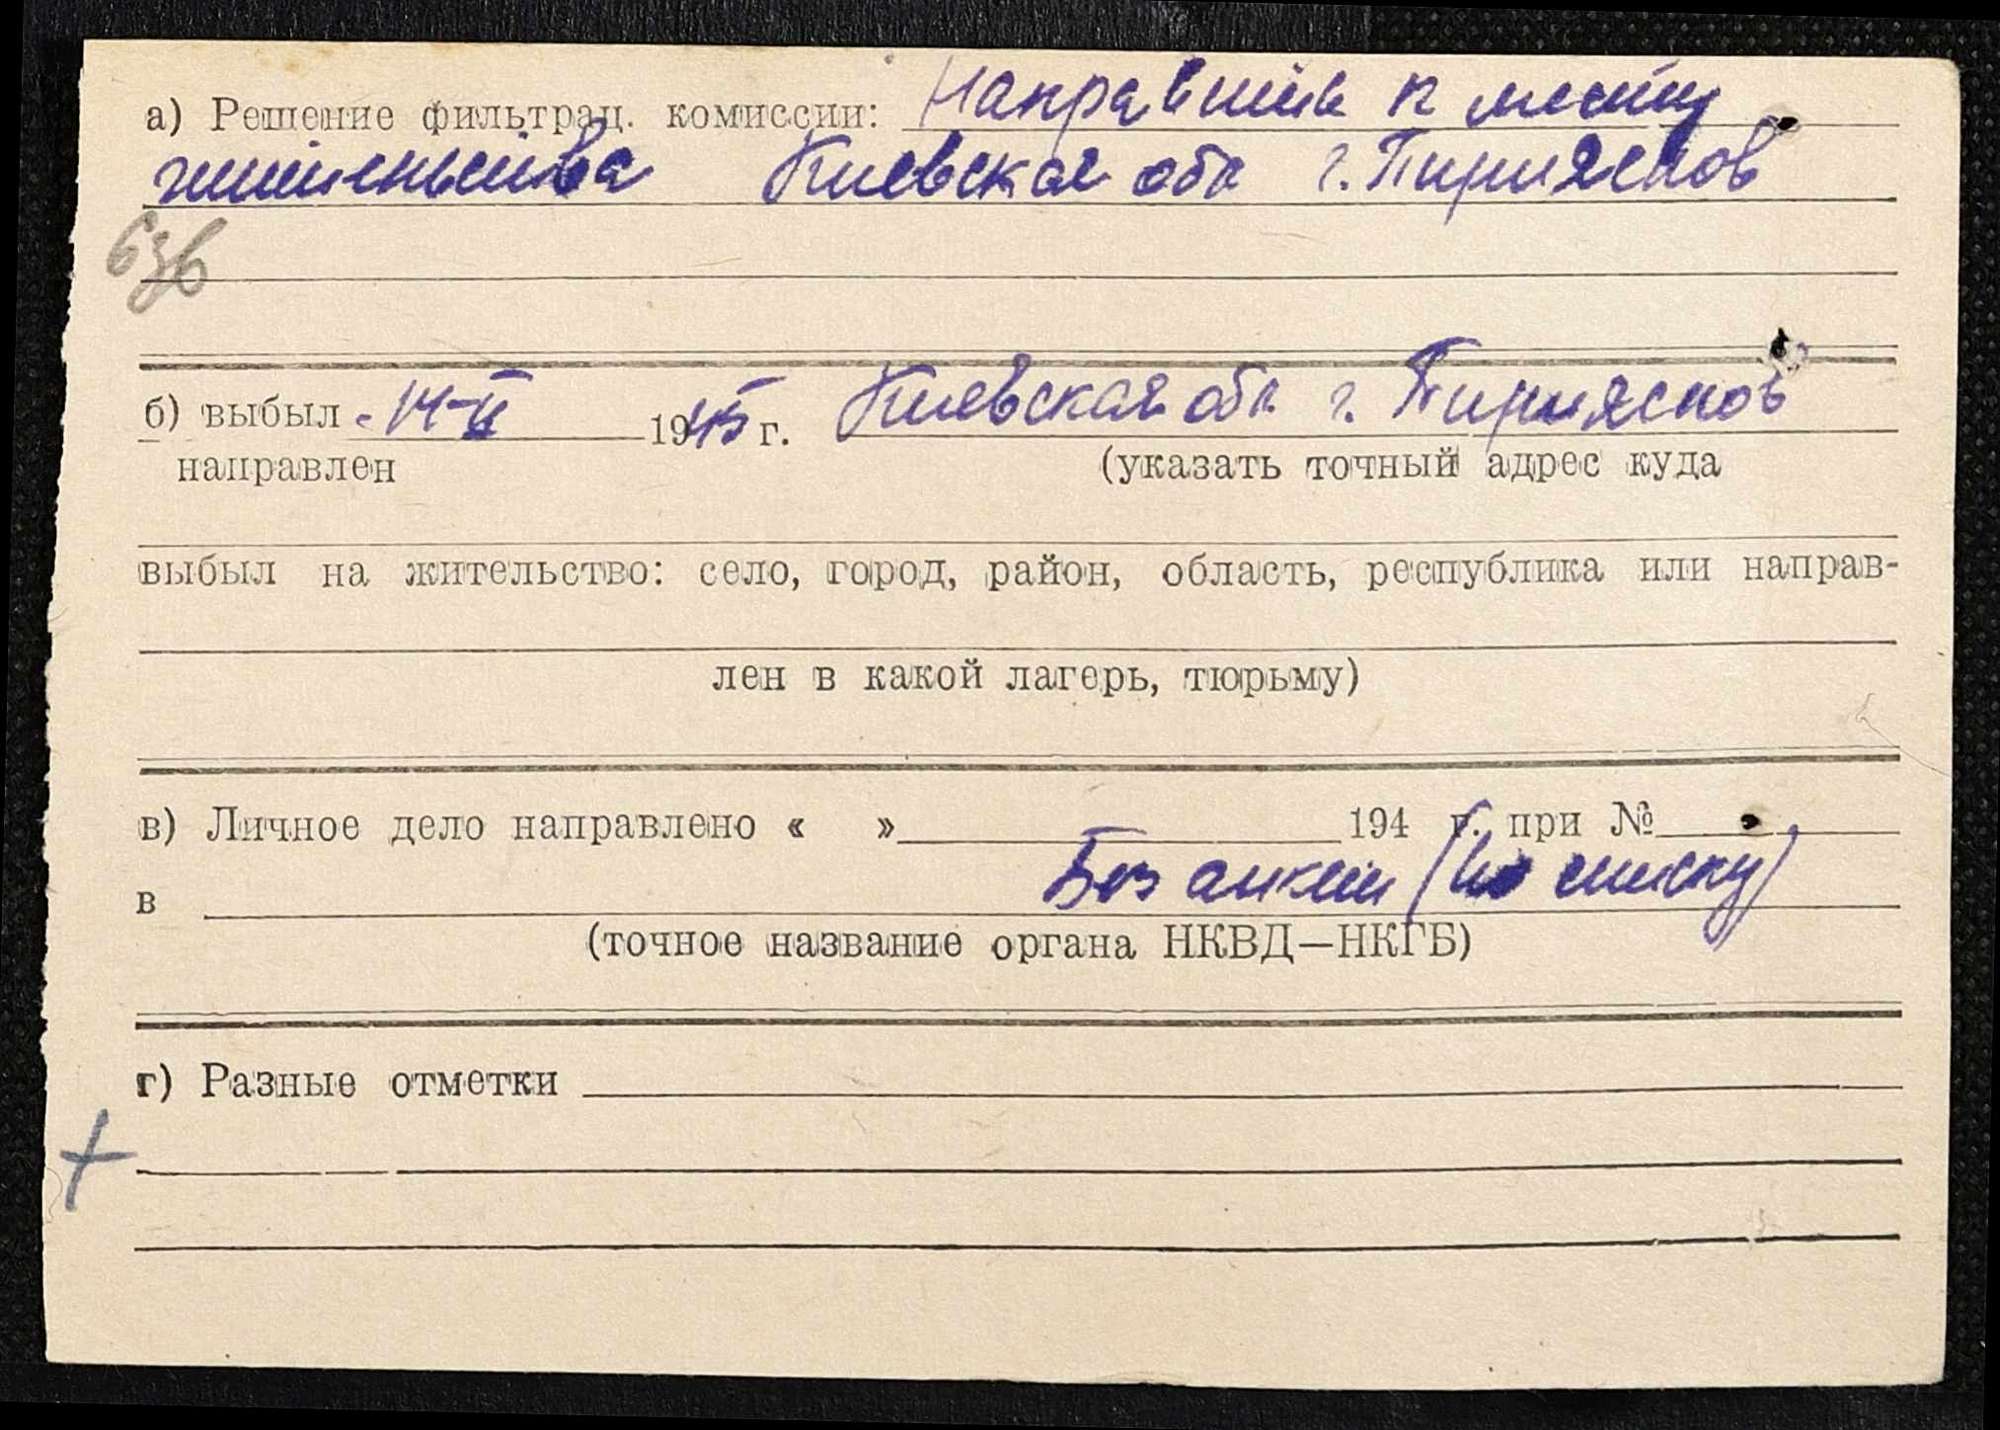 а) Решение фильтрац. комиссии: Направить к месту
жительства Киевская обл г. Пирияслов
636
б) выбыл 14-II 1945 г. Киевская обл г. Пирияслов
направлен (указать точный адрес куда
выбыл на жительство: село, город, район, область, республика или направ-
лен в какой лагерь, тюрьму)
в) Личное дело направлено « » 194 г. при №
в Без анкет (по списку)
(точное название органа НКВД—НКГБ)
г) Разные отметки